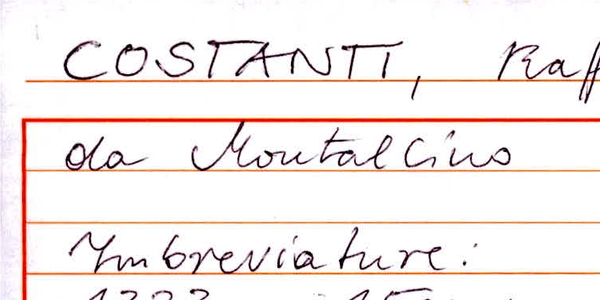 COSTANTI, Raff
da Montalcino
Imbreviature: